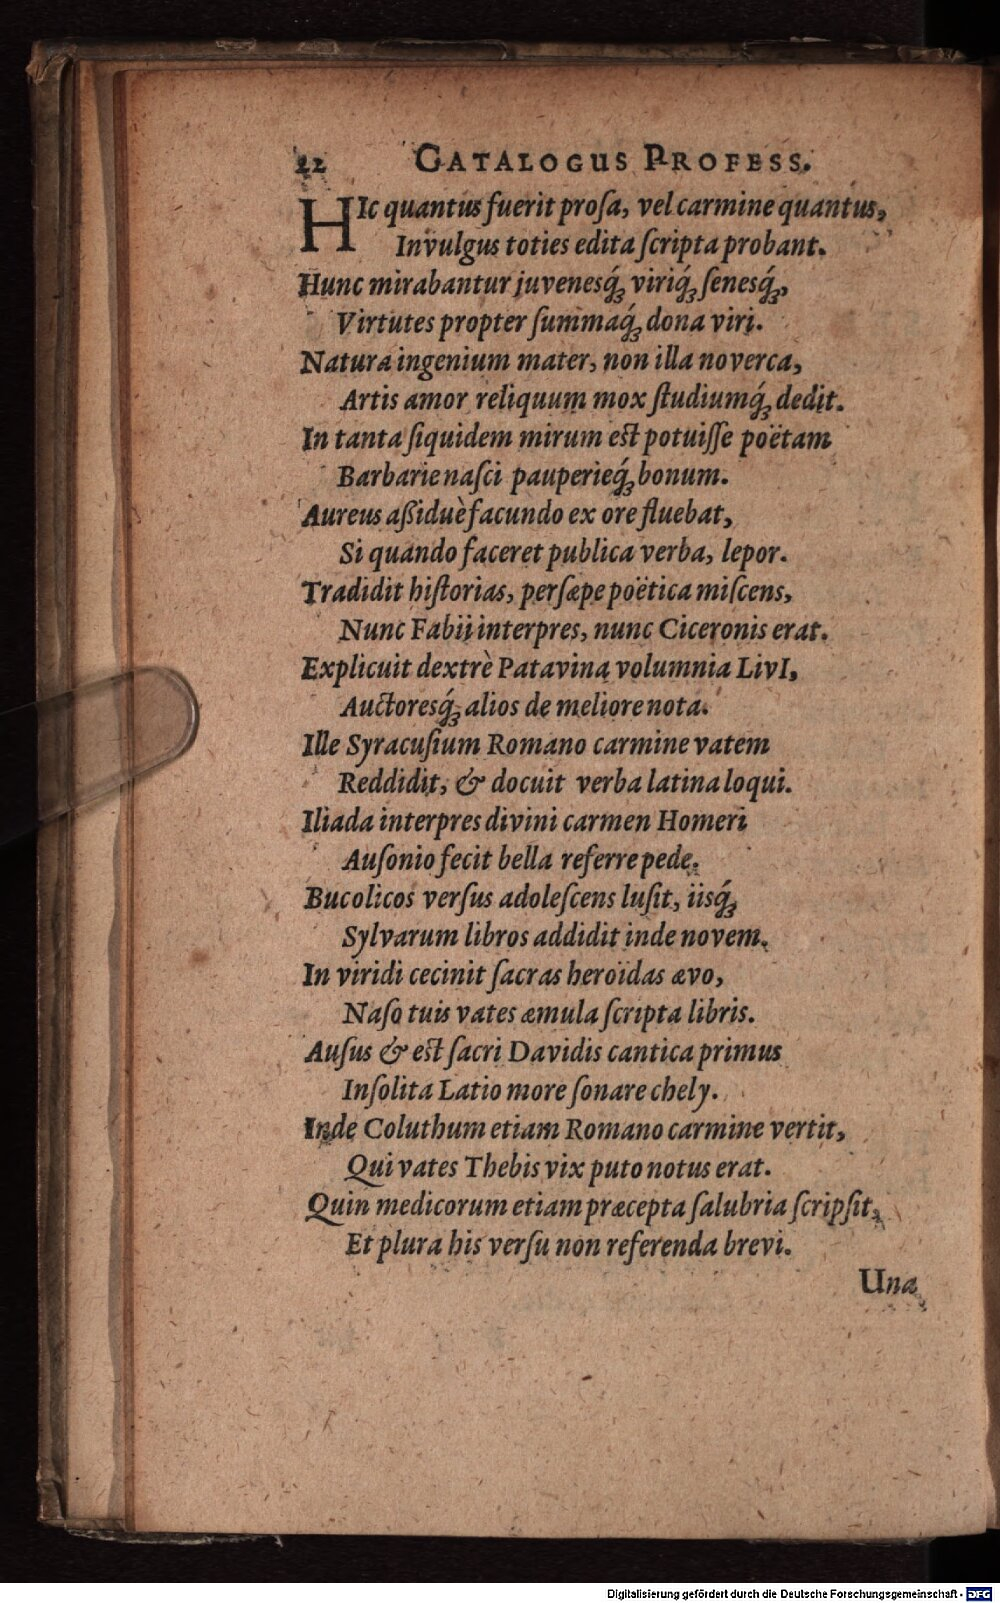 22 CATALOGUS PROFESS.
HIc quantus fuerit proſa, vel carmine quantus,
Invulgus toties edita ſcripta probant.
Hunc mirabantur juvenesq́ꝫ viriq́ꝫ ſenesq́ꝫ,
Virtutes propter ſummaq́ꝫ dona viri.
Natura ingenium mater, non illa noverca,
Artis amor reliquum mox ſtudiumq́ꝫ dedit.
In tanta ſiquidem mirum eſt potuiſſe poëtam
Barbarie naſci pauperieq́ꝫ bonum.
Aureus aßiduè facundo ex ore fluebat,
Si quando faceret publica verba, lepor.
Tradidit hiſtorias, perſæpe poëtica miſcens,
Nunc Fabii interpres, nunc Ciceronis erat.
Explicuit dextrè Patavina volumnia LivI,
Auctoresq́ꝫ alios de meliore nota.
Ille Syracuſium Romano carmine vatem
Reddidit, & docuit verba latina loqui.
Iliada interpres divini carmen Homeri
Auſonio fecit bella referre pede.
Bucolicos verſus adoleſcens luſit, iisq́ꝫ
Sylvarum libros addidit inde novem.
In viridi cecinit ſacras heroïdas ævo,
Naſo tuis vates æmula ſcripta libris.
Auſus & eſt ſacri Davidis cantica primus
Inſolita Latio more ſonare chely.
Inde Coluthum etiam Romano carmine vertit,
Qui vates Thebis vix puto notus erat.
Quin medicorum etiam præcepta ſalubria ſcripſit,
Et plura his verſu non referenda brevi.
Una
Digitalisierung gefördert durch die Deutsche Forschungsgemeinschaft - DFG